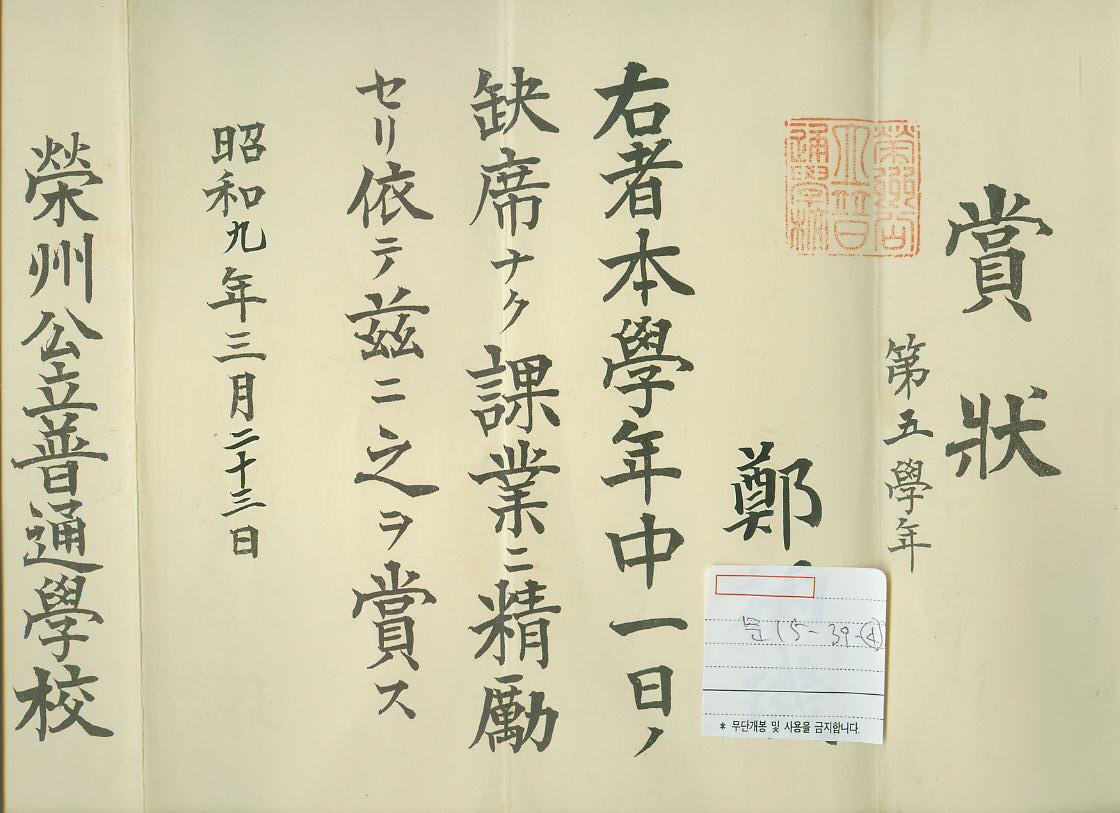 賞狀
第五學年
榮州公立普通學校
鄭
右者本學年中一日ノ
缺席ナク課業ニ精勵
セリ依テ茲ニ之ヲ賞ス
昭和九年三月二十三日
榮州公立普通學校
15-39-④
* 무단개봉 및 사용을 금지합니다.